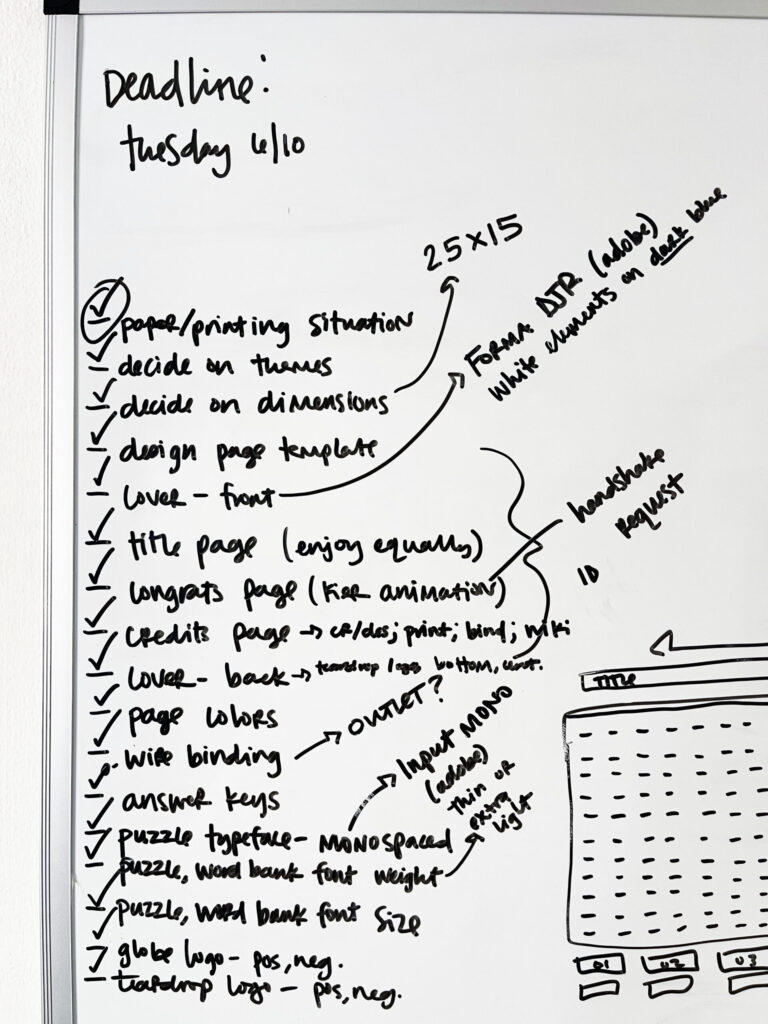 Deadline:
tuesday 6/10
25x15
FORMA DJR (adobe)
white elements on dark blue
paper/printing situation
decide on themes
decide on dimensions
design page template
cover - front
title page (enjoy equally)
handshake
request
congrats page (kier animation)
10
credits page → cr/des; print; bind; wiki
cover - back → teardrop logo bottom, cent.
TITLE
page colors
wire binding → OUTLET?
answer keys
Input MONO
(adobe)
thin or
extra
light
puzzle typeface - MONOspaced
puzzle, word bank font weight
puzzle, word bank font size
globe logo - pos, neg.
teardrop logo - pos, neg.
01 02 03